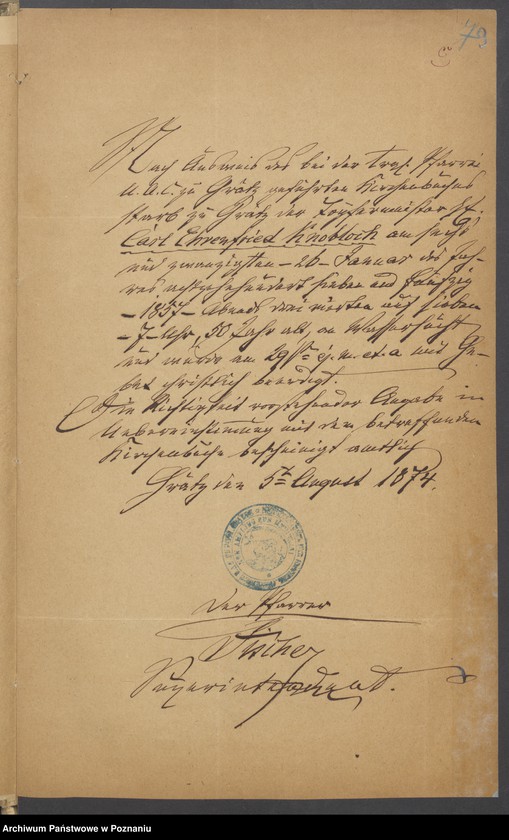 79
Nach Ausweis des bei der evgl. Pfarrei
U. A. C. zu Grätz geführten Kirchenbuches
starb zu Grätz der Töpfermeister H.
Carl Ehrenfried Knobloch am sechs
und zwanzigsten – 26 – Januar des Jah-
res achtzehnhundert sieben und fünfzig
– 1857 – Abends drei viertel auf sieben
– 7 – Uhr, 50 Jahr alt, an Wassersucht
und wurde am 29st ej. m. et a. mit Ge-
bet christlich beerdigt.
Die Richtigkeit vorstehender Angabe in
Uebereinstimmung mit dem betreffenden
Kirchenbuche bescheinigt amtlich
Grätz den 5t August 1874.
Der Pfarrer
Fischer
Superintendent.
Archiwum Państwowe w Poznaniu